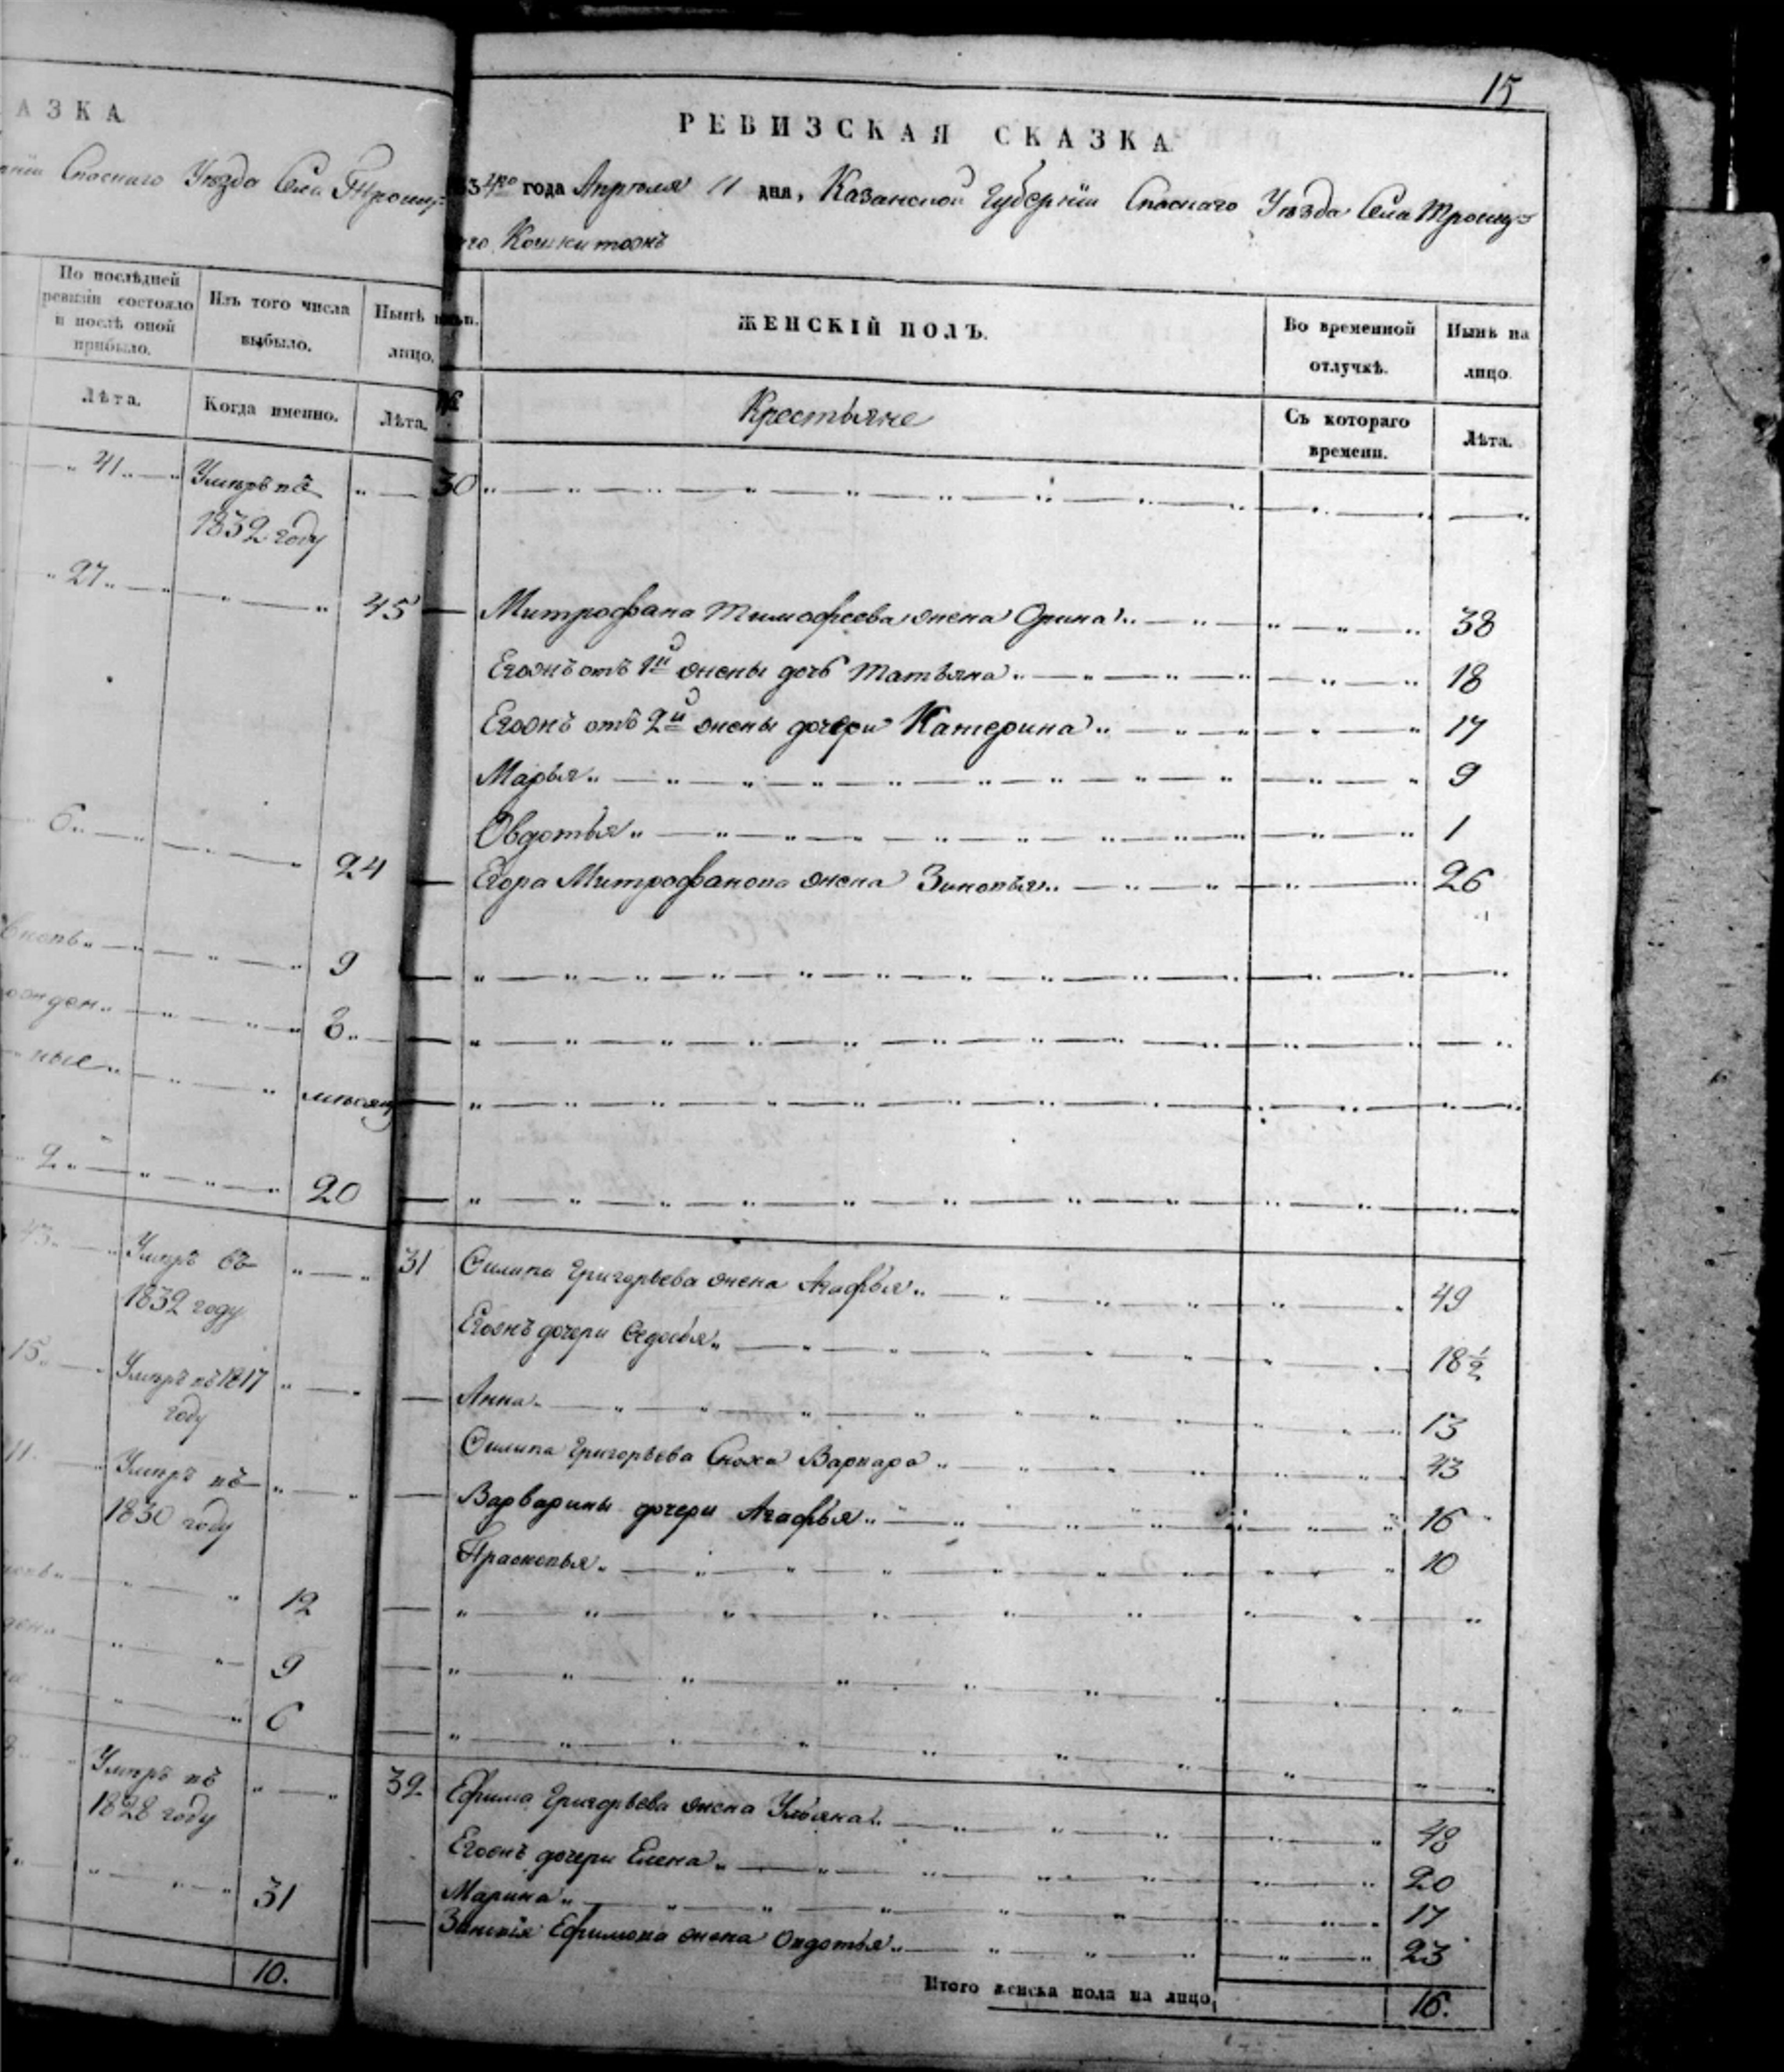 АЗКА
Спаскаго Уѣзда Села
По послѣдней
ревизіи состояло
и послѣ оной
прибыло.
Изъ того числа
выбыло.
Нынѣ на
лицо.
Лѣта.
Когда именно.
Лѣта.
41
Умеръ въ
1832 году
27
45
6
24
9
3
ные
мѣсяц
2
20
43
Умеръ въ
1832 году
15
Умеръ въ 1817
году
11
Умеръ въ
1830 году
12
9
6
Умеръ въ
1828 году
31
10.
15
РЕВИЗСКАЯ СКАЗКА
34го года Апреля 11 дня, Казанской Губерніи Спаскаго Уѣзда Села Троиц=
ЖЕНСКІЙ ПОЛЪ.
Во временной
отлучкѣ.
Нынѣ на
лицо.
Крестьяне
Съ котораго
времени.
Лѣта.
30
Митрофана Тимофеева жена Орина 38
Егожъ отъ 1й жены дочь Татьяна 18
Егожъ отъ 2й жены дочери Катерина 17
Марья 9
Овдотья 1
Егора Митрофанова жена Зиновья 26
31 Филипа Григорьева жена Агафья 49
Егожъ дочери Федосья 18 1/2
Анна 13
Филипа Григорьева Сноха Варвара 43
Варварины дочери Агафья 16
Прасковья 10
32 Ефима Григорьева жена Ульяна 48
Егожъ дочери Елена 20
Марина 17
Ефимова жена Овдотья 23
Итого женска пола на лицо 16.